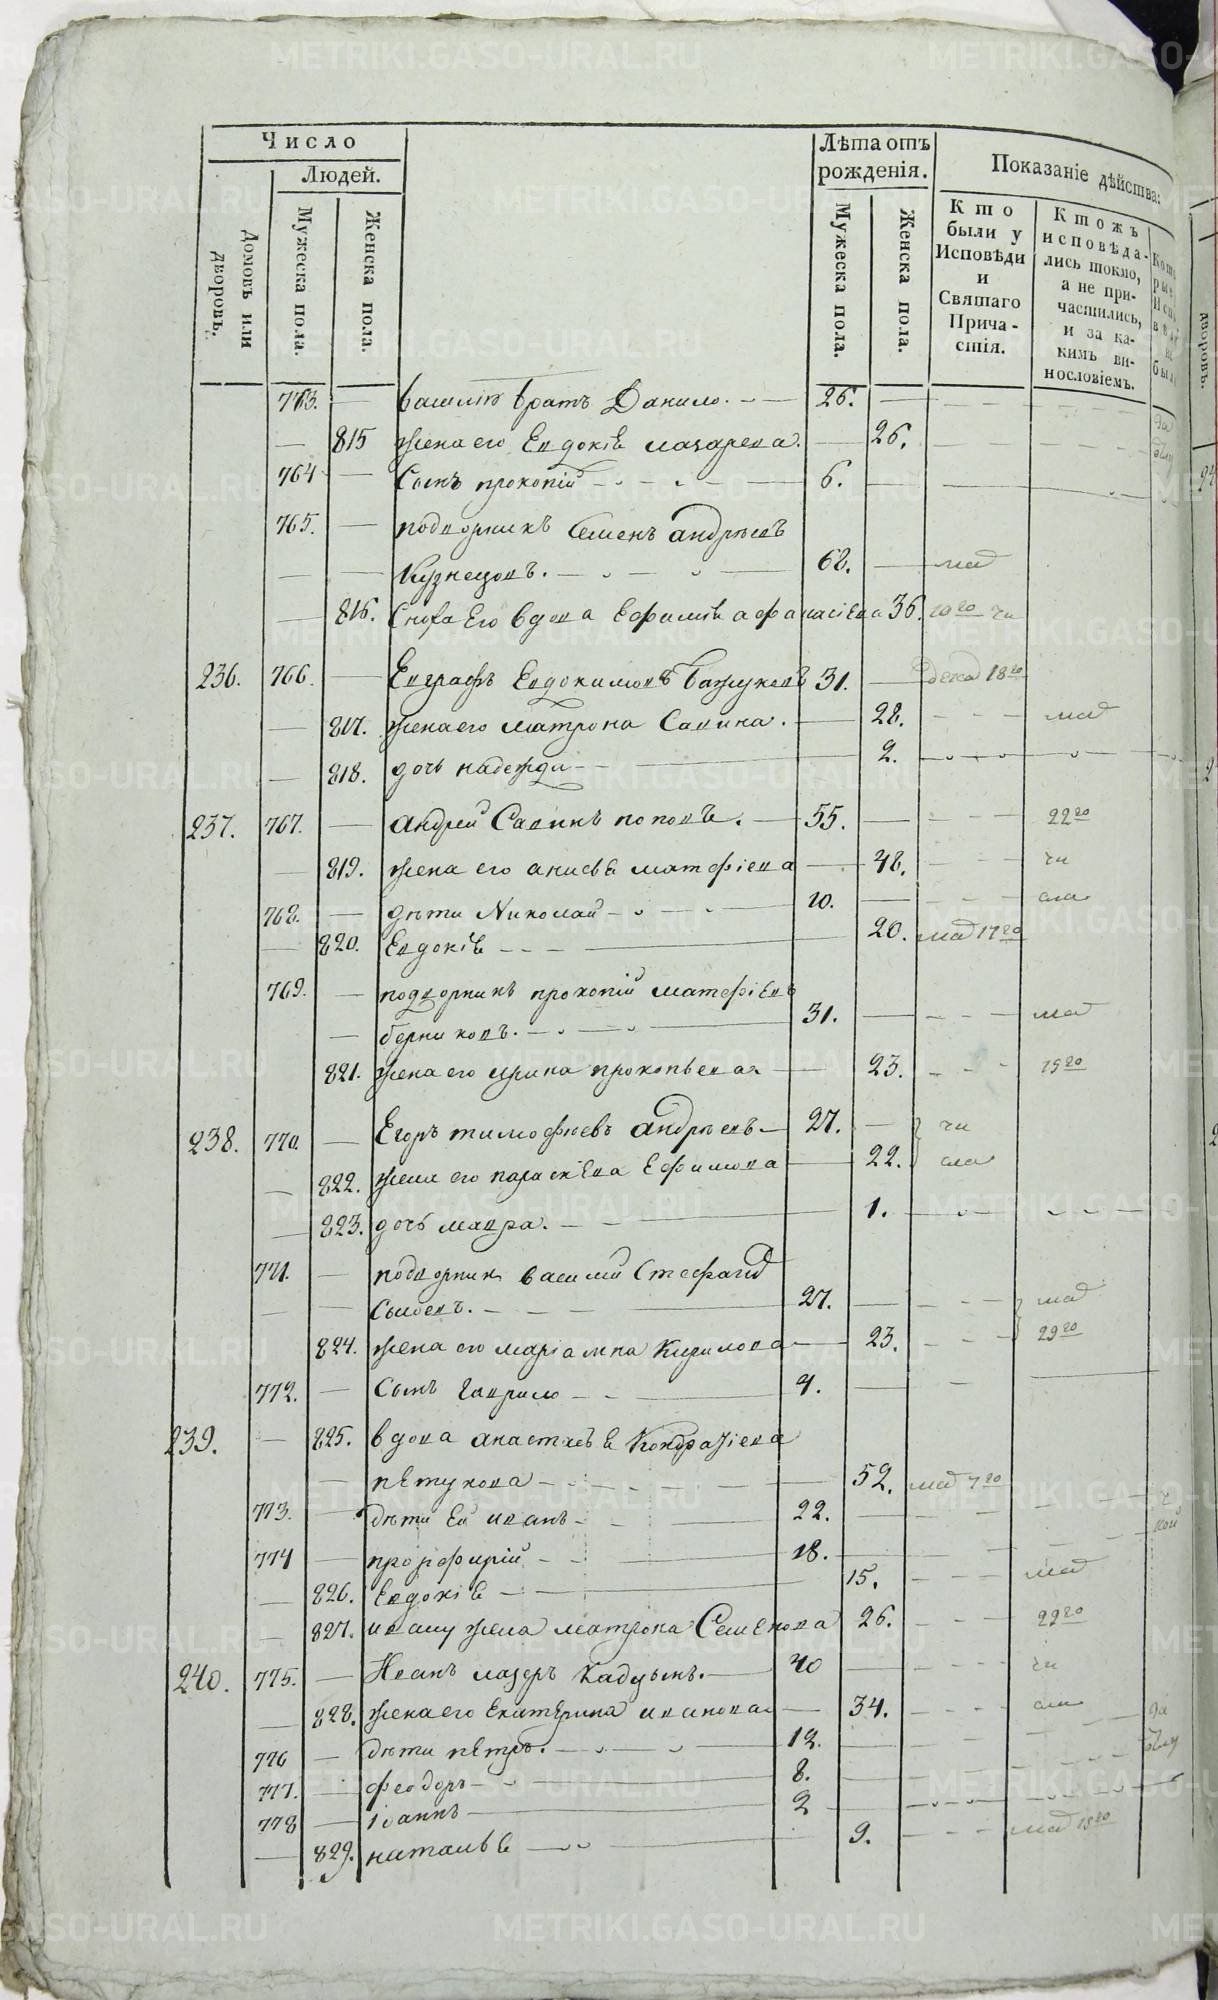 Число
Людей.
Домовъ или дворовъ.
Мужеска пола.
Женска пола.
Лѣта отъ рожденія.
Мужеска пола.
Женска пола.
Показаніе дѣйства:
Кто были у Исповѣди и Святаго Прича-стія.
Ктожъ исповѣда-лись токмо, а не при-частились, и за ка-кимъ ви-нословіемъ.
763. — братъ Данило. — 26.
— 815 жена его Евдокія Лазарева. — 26.
764 — Сынъ прокопій — 6.
765. — подворникъ Семенъ андрѣевъ
Кузнецовъ. — 62. — май
— 816. Сноха Его вдова Ефимія афанасіева 36. 20 чи
236. 766. — Евграфъ Евдокимовъ Бажуковъ 31. — 18
— 817. жена его матрона Савина. — 28. май
— 818. дочь надежда — 2.
237. 767. — андрей Савинъ поповъ. — 55. — 22
— 819. жена его анисья матфіева — 48. чи
768. — дѣти Николай — 10. — сла
— 820. Евдокія — 20. май 17
769. — подворникъ прокопій матфіевъ
— берниковъ. — 31. — май
821. жена его ирина прокопьева — 23. 15
238. 770. — Егоръ тимофѣевъ андрѣевъ — 27. — чи
— 822. жена его параскева Ефимова — 22. сла
— 823. дочь мавра. — 1.
771. — подворникъ василій Стефанов
— 27. — май
824. жена его маріамна Кирилова — 23. 29
772. — Сынъ гаврило — 4.
239. — 825. вдова анастасья Кондратіева
— пѣтухова — 52. май 7
773. — дѣти Ей иванъ — 22.
774 — порфирій — 18. —
— 826. Евдокія — 15. май
— 827. ивану жена матрона Семенова 26. 22
240. 775. — Иванъ — 40 — чи
— 828. жена его Екатерина иванова — 34. сла
776 — дѣти пѣтръ. — 12.
777. — феодоръ — 8.
778 — іоаннъ — 2
— 829. наталья — 9. май 15
дворовъ.
METRIKI.GASO-URAL.RU